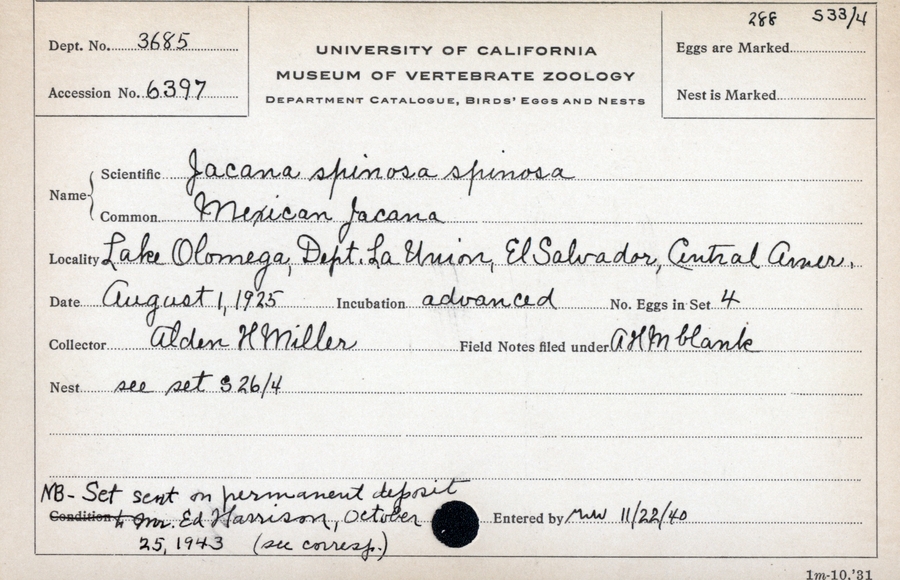 288 S33/4
Dept. No. 3685
UNIVERSITY OF CALIFORNIA
Eggs are Marked
MUSEUM OF VERTEBRATE ZOOLOGY
Accession No. 6397
DEPARTMENT CATALOGUE, BIRDS' EGGS AND NESTS
Nest is Marked
Name Scientific Jacana spinosa spinosa
Common Mexican Jacana
Locality Lake Olomega, Dept. La Union, El Salvador, Central Amer.
Date August 1, 1925 Incubation advanced No. Eggs in Set 4
Collector Alden H Miller Field Notes filed under AHM blank
Nest see set S26/4
NB- Set sent on permanent deposit
Condition to Mr. Ed Harrison, October Entered by 11/22/40
25, 1943 (see corresp.)
1m-10,'31